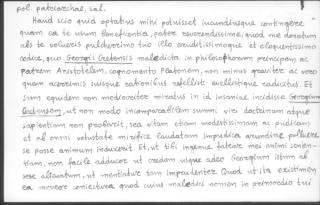 pol. patriarchae, sal.
Haud scio quid optatius mihi potuisset iucundiusque contingere
quam ea te unum beneficentia, pater reverendissime, quod me donatum
abs te volueris pulcherrimo tuo illo eruditissimoque et eloquentissimo
codice, quo Georgii Cretensis maledicta in philosophorum principem ac
patrem Aristotelem, cognomento Platonem, non minus graviter ac vero
quam acerrimis suisque rationibus refellisti evellistique radicitus. Et
sum equidem non mediocriter miratus in id insaniae incidisse Georgium
Cretensem, ut non modo incomparabilem summi viri doctrinam atque
sapientiam non probaret, sed vitam etiam modestissimam ac pudicam
et ab omni vetustate mirifice laudatam impudica arundine polluere
se posse animum induxerit. Et, ut tibi ingenue fatear mei animi senten-
tiam, non facile adducor ut credam usque adeo Georgium istum ab
sese alienatum, ut mentiatur tam impudenter. Quod ut ita existimem
ea moveor coniectura quod cuius maledici nomen in primordio tui